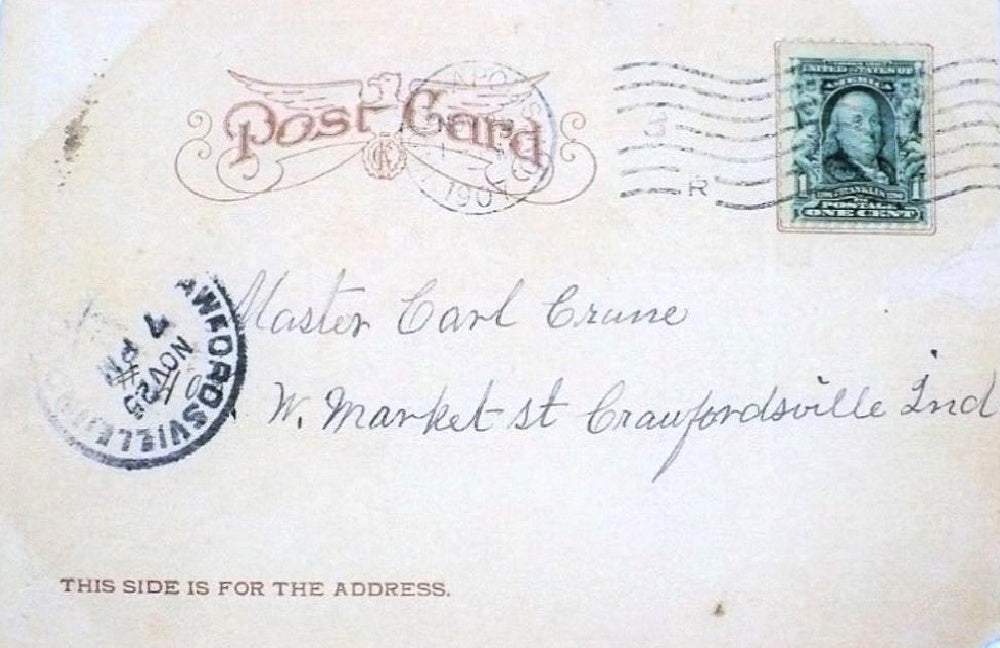 Post Card
1907
R
UNITED STATES OF
AMERICA
FRANKLIN
1 POSTAGE 1
ONE CENT
Master Carl Crane
W. Market st Crawfordsville Ind
AWFORDSVILLE
7
PM
NOV 25
THIS SIDE IS FOR THE ADDRESS.